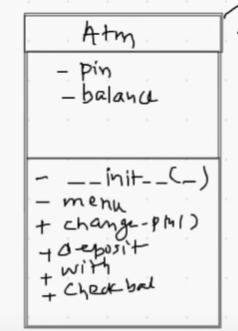 Atm
- pin
- balance
- __init__(_)
- menu
+ change-pin()
+ deposit
+ with
+ check bal